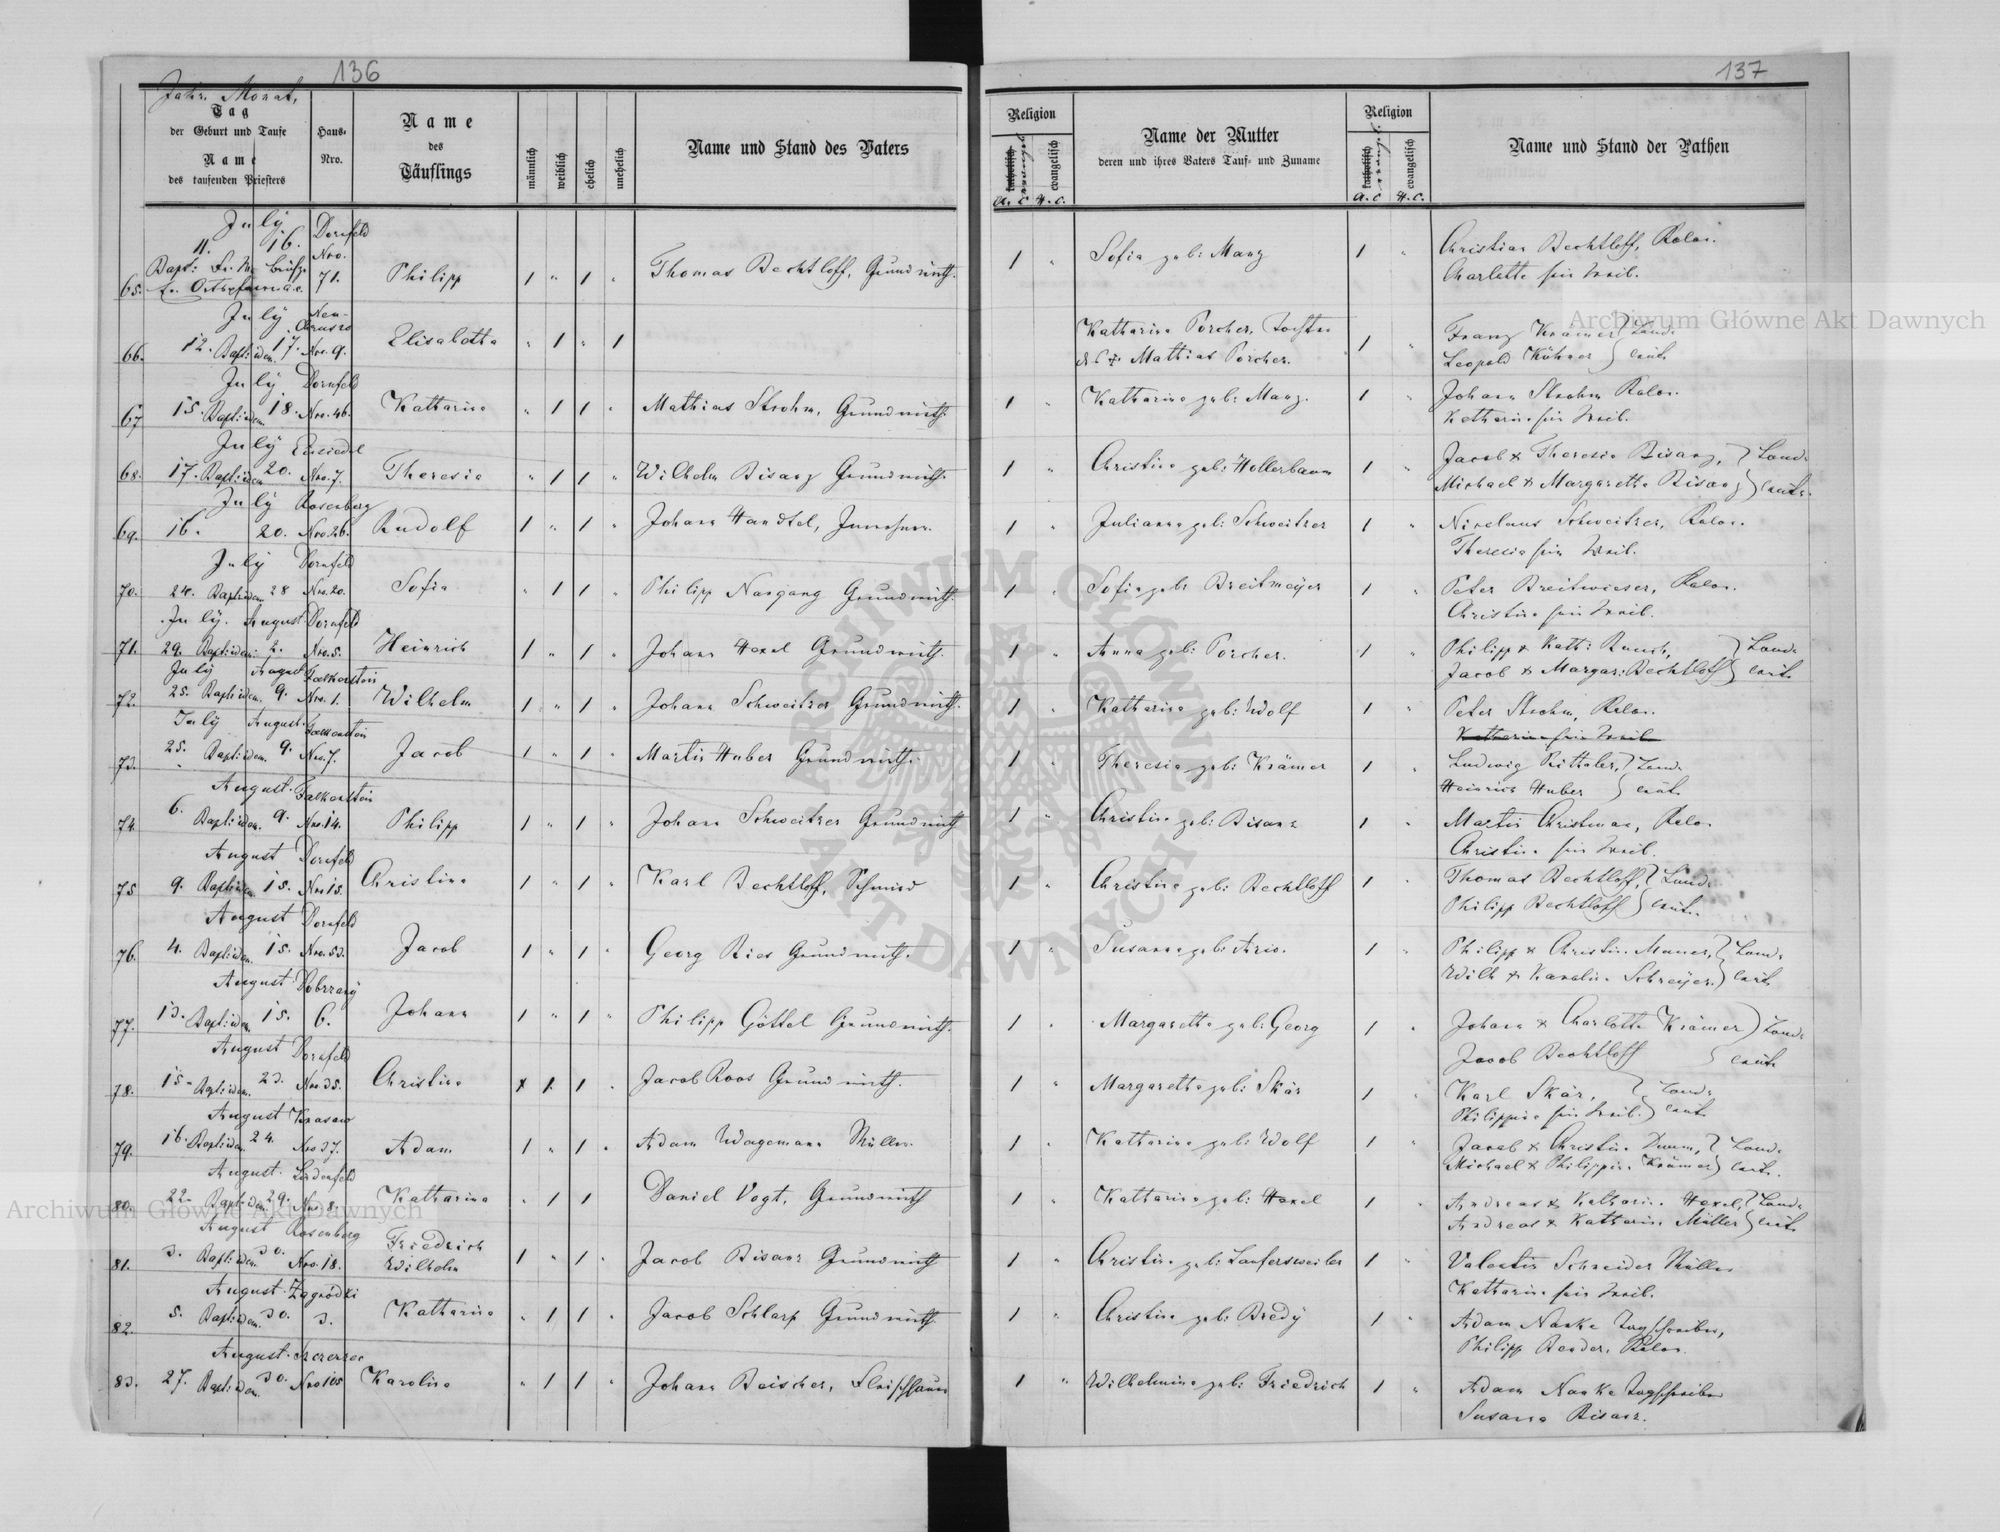 136
137
Jahr. Monat.
Tag
der Geburt und Taufe
Name
des taufenden Priesters
Haus-
Nro.
Name
des
Täuflings
männlich
weiblich
ehelich
unehelich
Name und Stand des Vaters
Religion
evangelisch
A. C. H. C.
Name der Mutter
deren und ihres Vaters Tauf- und Zuname
Religion
evangelisch
A. C. H. C.
Name und Stand der Pathen
July Dornfeld
11. 16. Nro.
65. 71. Philipp 1 " 1 " Thomas Bechtloff, Grundwirth. 1 " Sofia geb: Manz 1 " Christian Bechtloff, Kolon.
Charlotte sein Weib.
July Neu-Chrusno
66. 12. Bapt: idem. 17. Nro. 9. Elisabetha " 1 " 1 Katharina Porcher, Tochter 1 " Franz Krämer } Land-
Mathias Porcher. Leopold Kühner } leute
July Dornfeld
67. 15. Bapt: idem 18. Nro. 46. Katharina " 1 1 " Mathias Strohm, Grundwirth. 1 " Katharina geb: Manz. 1 " Johann Strohm Kolon.
Katharina sein Weib.
July Einsiedel
68. 17. Bapt: idem 20. Nro. 7. Theresia " 1 1 " Wilhelm Bisanz Grundwirth. 1 " Christina geb: Hollerbaum 1 " Jacob & Theresia Bisanz, } Land-
Michael & Margaretha Bisanz } leute.
July Rosenberg
69. 16. 20. Nro. 26. Rudolf 1 " 1 " Johann Handtel, Inwohner. 1 " Julianna geb: Schweitzer 1 " Nicolaus Schweitzer, Kolon.
Theresia sein Weib.
July Dornfeld
70. 24. Bapt: idem 28 Nro. 20. Sofia " 1 1 " Philipp Nargang Grundwirth. 1 " Sofia geb: Breitmeÿer 1 " Peter Breitwieser, Kolon.
Christina sein Weib.
July. August Dornfeld
71. 29. Bapt: idem: 2. Nro. 5. Heinrich 1 " 1 " Johann Hexel Grundwirth. 1 " Anna geb: Porcher. 1 " Philipp & Kath: Rauch, } Land-
Jacob & Margar: Bechtloff } leute
July August Falkenstein
72. 25. Bapt: idem. 9. Nro. 1. Wilhelm 1 " 1 " Johann Schweitzer Grundwirth. 1 " Katharina geb: Wolf 1 " Peter Strohm, Kolon.
Katharina sein Weib
July August. Falkenstein
73. 25. Bapt: idem. 9. Nro. 7. Jacob 1 " 1 " Martin Huber Grundwirth. 1 " Theresia geb: Krämer 1 " Ludwig Rithaler, } Land-
Heinrich Huber } leute.
August. Falkenstein
74. 6. Bapt: idem. 9. Nro. 14. Philipp 1 " 1 " Johann Schweitzer Grundwirth 1 " Christina geb: Bisanz 1 " Martin Christman, Kolon
Christina sein Weib.
August Dornfeld
75. 9. Bapt: idem 15. Nro. 15. Christina 1 " 1 " Karl Bechtloff, Schmied 1 " Christina geb: Bechtloff 1 " Thomas Bechtloff, } Land-
Philipp Bechtloff } leute.
August Dornfeld
76. 4. Bapt: idem 15. Nro. 53. Jacob 1 " 1 " Georg Ries Grundwirth. 1 " Susanna geb: Aris. 1 " Philipp & Christin. Mauer, } Land-
Wilh & Karolin. Schreyer. } leute
August Dobrzany
77. 13. Bapt: idem. 15. 6. Johann 1 " 1 " Philipp Göttel Grundwirth. 1 " Margaretha geb: Georg 1 " Johann & Charlotte Krämer } Land-
Jacob Bechtloff } leute
August Dornfeld
78. 15. Bapt: idem. 23. Nro 35. Christina 1 1 " Jacob Roos Grundwirth. 1 " Margaretha geb: Skär 1 " Karl Skär, } Land-
Philippina sein Weib. } leute
August Krasow
79. 16. Bapt: idem. 24. Nro 37. Adam 1 " 1 " Adam Wagemann Müller. 1 " Katharina geb: Wolf 1 " Jacob & Christina Daum, } Land-
Michael & Philippin. Krämer } leute.
August. Lindenfeld
80. 22. Bapt: idem 29. Nro. 8. Katharina " 1 1 Daniel Vogt, Grundwirth 1 " Katharina geb: Hexel 1 " Andreas & Katharin. Hexel, } Land-
Andreas & Katharin. Müller } leute
August Rosenberg
81. 3. Bapt: idem 30. Nro. 18. Friedrich
Wilhelm 1 " 1 " Jacob Bisanz Grundwirth 1 " Christina geb: Laufersweiler 1 " Valentin Schneider Müller
Katharina sein Weib.
August. Zagrodki
82. 5. Bapt: idem. 30. 3. Katharina " 1 1 " Jacob Schlarp Grundwirth. 1 " Christina geb: Bredÿ 1 " Adam Nanke
Philipp Bender, Kolon.
August. Szczerzec
83. 27. Bapt: idem. 30. Nro 105 Karolina " 1 1 " Johann Beischer, Fleischhauer 1 " Wilhelmina geb: Friedrich 1 " Adam Nanke
Susanna Bisanz.
Archiwum Główne Akt Dawnych
Archiwum Główne Akt Dawnych
ARCHIWUM GŁÓWNE
AKT DAWNYCH